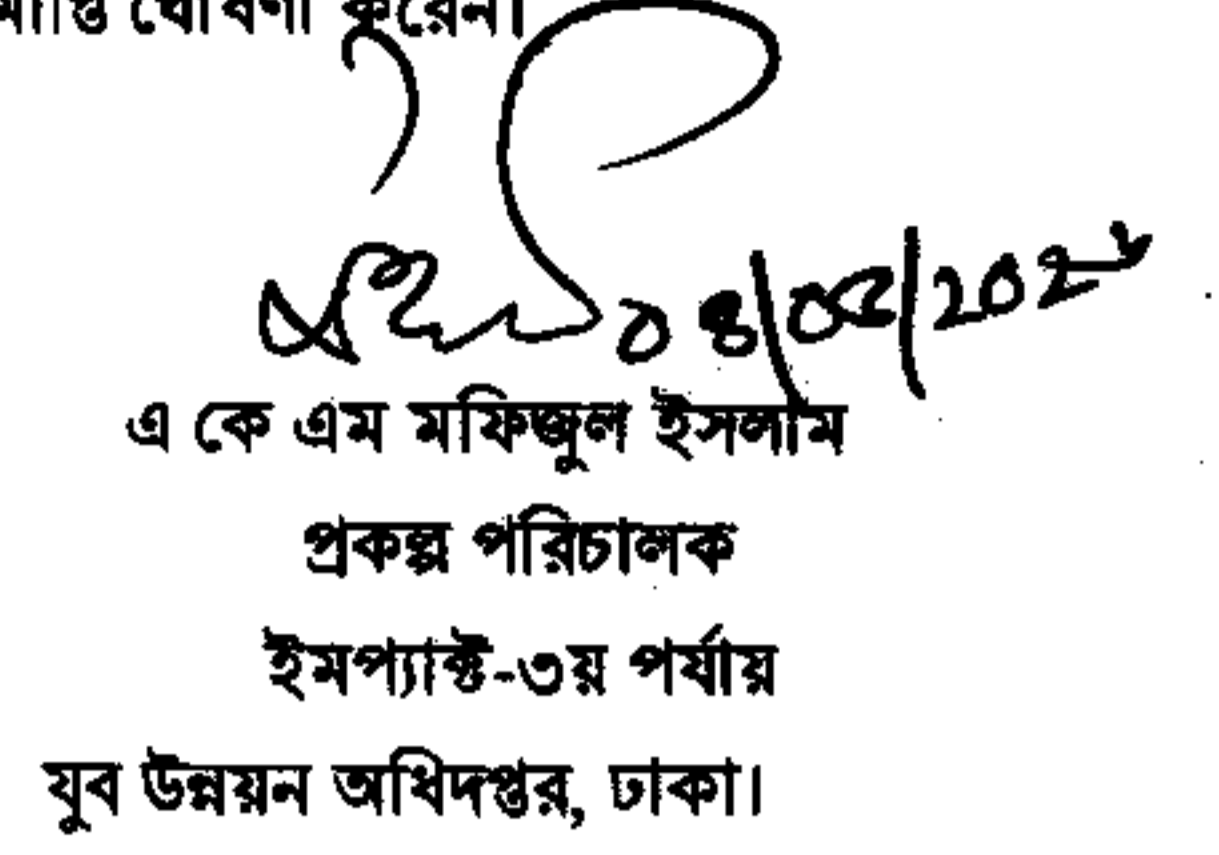 ঘোষণা করেন।
এ কে এম মফিজুল ইসলাম
প্রকল্প পরিচালক
ইমপ্যাক্ট-৩য় পর্যায়
যুব উন্নয়ন অধিদপ্তর, ঢাকা।